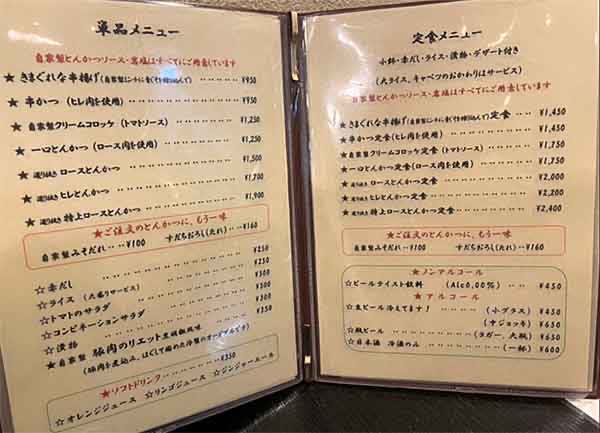 単品メニュー
自家製とんかつソース・岩塩はすべてにご用意しています
★きまぐれな串揚げ(自家製ミンチに香ぐすを練り込んで) ¥950
★串かつ (ヒレ肉を使用) ¥950
★自家製クリームコロッケ (トマトソース) ¥1,250
★一口とんかつ (ロース肉を使用) ¥1,250
★ ロースとんかつ ¥1,500
★ ヒレとんかつ ¥1,700
★ 特上ロースとんかつ ¥1,900
★ご注文のとんかつに、もう一味
自家製みそだれ ‥‥¥100 すだちおろし(たれ) ‥¥160
☆赤だし ¥250
☆ライス (大盛りサービス) ¥250
☆トマトのサラダ ¥300
☆コンビネーションサラダ ¥300
☆漬物 ¥300
★自家製 豚肉のリエット 黒胡椒風味
(豚肉を煮込み、ほぐして固めた冷製のオードブルです)
★ソフトドリンク ‥‥‥‥ ¥350
☆オレンジジュース ☆リンゴジュース ☆ジンジャーエール
定食メニュー
小鉢・赤だし・ライス・漬物・デザート付き
(大ライス、キャベツのおかわりはサービス)
自家製とんかつソース・岩塩はすべてにご用意しています
★きまぐれな串揚げ(自家製ミンチに香ぐすを練り込んで)定食 ¥1,450
★串かつ定食(ヒレ肉を使用) ¥1,450
★自家製クリームコロッケ定食(トマトソース) ¥1,750
★一口とんかつ定食(ロース肉を使用) ¥1,750
★ ロースとんかつ定食 ¥2,000
★ ヒレとんかつ定食 ¥2,200
★ 特上ロースとんかつ定食 ¥2,400
★ご注文のとんかつに、もう一味
自家製みそだれ ‥‥¥100 すだちおろし(たれ) ‥¥160
★ノンアルコール
☆ビールテイスト飲料 (Alc0.00%) ‥‥ ¥450
★アルコール
☆生ビール冷えてます! ‥‥ (小グラス) ¥450
(中ジョッキ) ¥650
☆瓶ビール ‥‥ (ラガー、大瓶) ¥650
☆日本酒 冷酒のみ ‥‥ (一杯) ¥600